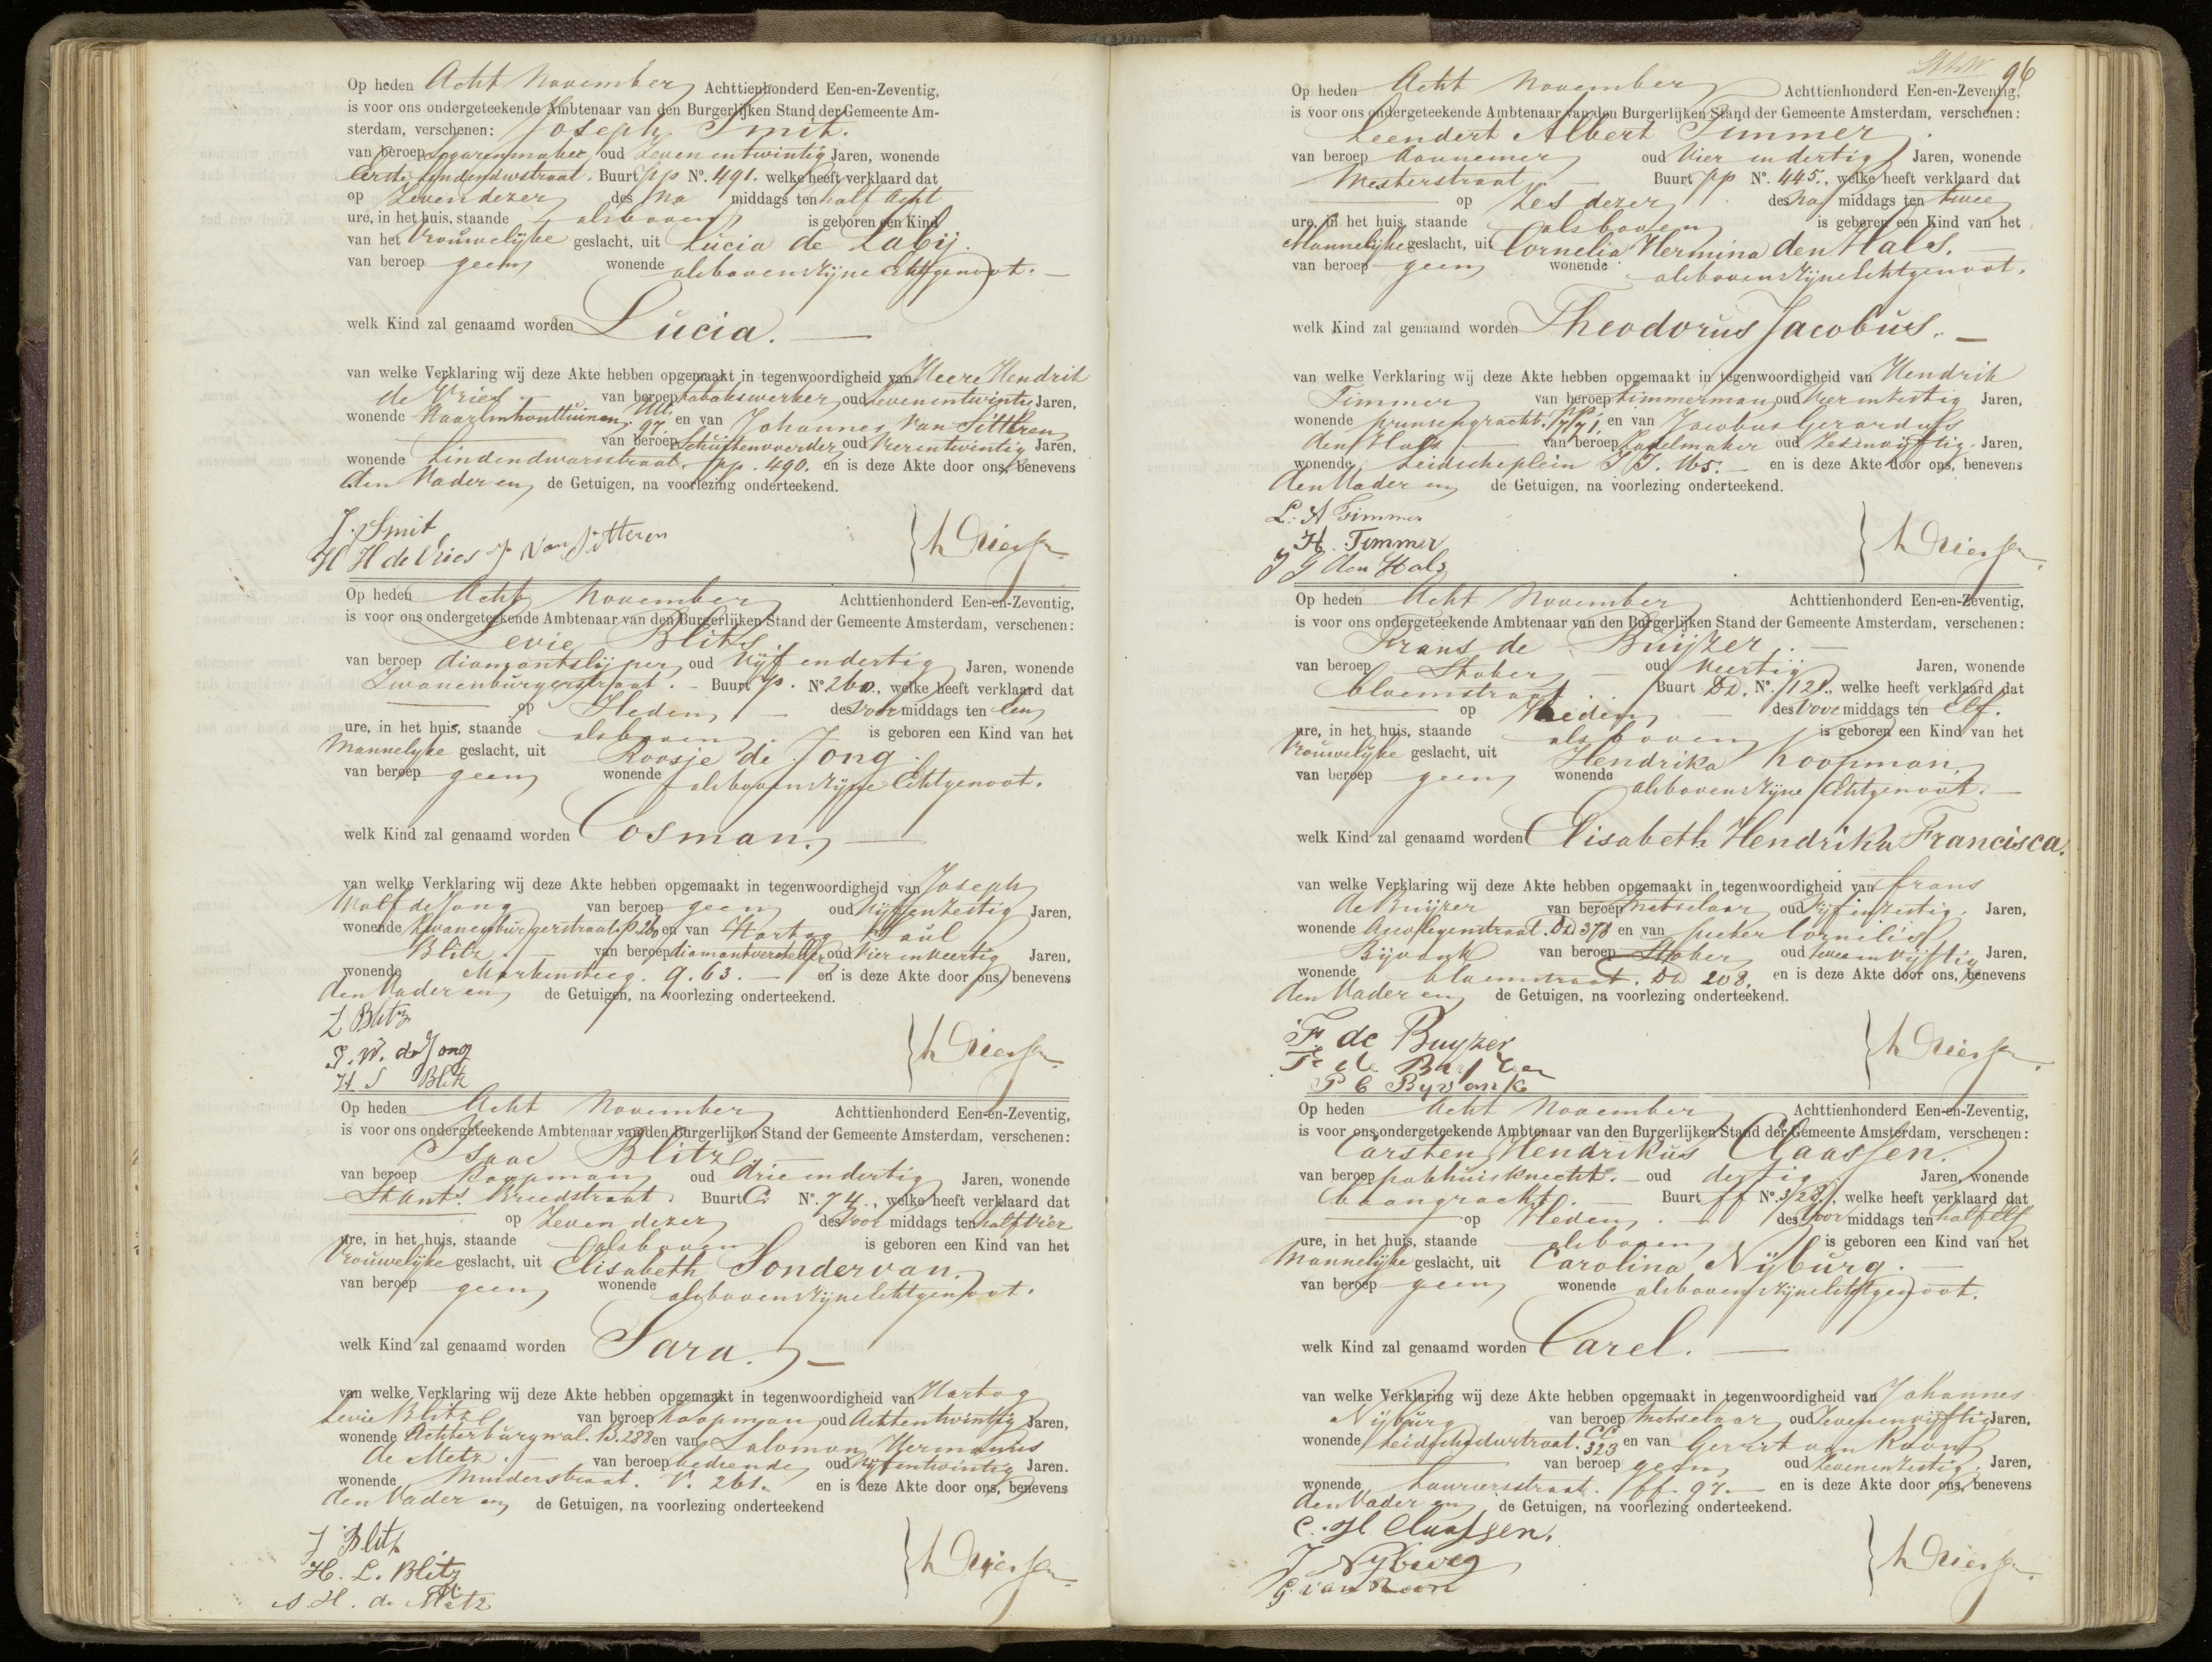 Op heden Acht November Achttienhonderd Een-en-Zeventig,
is voor ons ondergeteekende Ambtenaar van den Burgerlijken Stand der Gemeente Am-
sterdam, verschenen: Joseph Smit.
van beroep Sigarenmaker oud Zeven entwintig Jaren, wonende
Eerste Lindendwstraat. Buurt pp No. 491. welke heeft verklaard dat
op Zeven dezer des Na middags ten half Acht
ure, in het huis, staande alsboven is geboren een Kind
van het Vrouwelijke geslacht, uit Lucia de Labij.
van beroep geen wonende alsboven zijne Echtgenoot.
welk Kind zal genaamd worden Lucia.
van welke Verklaring wij deze Akte hebben opgemaakt in tegenwoordigheid van Meere Hendrik
de Vries van beroep tabakswerker oud Zevenentwintig Jaren,
wonende Haarlmhouttuinen 97. en van Johannes van Sitteren
van beroep Schuitenvoerder oud Vierentwintig Jaren,
wonende Lindendwarsstraat. pp. 490. en is deze Akte door ons, benevens
den Vader en de Getuigen, na voorlezing onderteekend.
J. Smit
H H de Vries J van Sitteren
Op heden Acht November Achttienhonderd Een-en-Zeventig,
is voor ons ondergeteekende Ambtenaar van den Burgerlijken Stand der Gemeente Amsterdam, verschenen:
Levie Blitz
van beroep diamantslijper oud Vijf endertig Jaren, wonende
Zwanenburgerstraat. Buurt P. No 260., welke heeft verklaard dat
op Heden des Voor middags ten Een
ure, in het huis, staande alsboven is geboren een Kind van het
Mannelyke geslacht, uit Roosje de Jong.
van beroep geen wonende alsboven zijne Echtgenoot.
welk Kind zal genaamd worden Cosman.
van welke Verklaring wij deze Akte hebben opgemaakt in tegenwoordigheid van Joseph
Wolf de Jong van beroep geen oud Vijfenzestig Jaren,
wonende Zwanenburgerstraat P. 260 en van Hartog Saul
Blitz. van beroep diamantversteller oud Vier enveertig Jaren,
wonende Markensteeg. Q. 63. en is deze Akte door ons, benevens
den Vader en de Getuigen, na voorlezing onderteekend.
L Blitz
J. W. de Jong
H S Blitz
Op heden Acht November Achttienhonderd Een-en-Zeventig,
is voor ons ondergeteekende Ambtenaar van den Burgerlijken Stand der Gemeente Amsterdam, verschenen:
Isaac Blitz
van beroep Koopman oud drie endertig Jaren, wonende
St Ants Breedstraat. Buurt C. No. 74., welke heeft verklaard dat
op Zeven dezer des Voor middags ten half Vier
ure, in het huis, staande alsboven is geboren een Kind van het
Vrouwelyke geslacht, uit Elisabeth Sondervan.
van beroep geen wonende alsboven zijne Echtgenoot.
welk Kind zal genaamd worden Sara.
van welke Verklaring wij deze Akte hebben opgemaakt in tegenwoordigheid van Hartog
Levie Blitz van beroep Koopman oud Achtentwintig Jaren,
wonende Achterburgwal. B. 288 en van Salomon Hermanus
de Metz. van beroep bediende oud Vijfentwintig Jaren.
wonende Muiderstraat. V. 261. en is deze Akte door ons, benevens
den Vader en de Getuigen, na voorlezing onderteekend
J Blitz
H. L. Blitz
S H. de Metz
96
Op heden Acht November Achttienhonderd Een-en-Zeventig,
is voor ons ondergeteekende Ambtenaar van den Burgerlijken Stand der Gemeente Amsterdam, verschenen:
Leendert Albert Timmer.
van beroep Aannemer oud Vier en dertig Jaren, wonende
Westerstraat. Buurt pp No. 445., welke heeft verklaard dat
op Zes dezer des Na middags ten twee
ure, in het huis, staande alsboven is geboren een Kind van het
Mannelijke geslacht, uit Cornelia Hermina den Hals.
van beroep geen wonende alsboven zijne Echtgenoot.
welk Kind zal genaamd worden Theodorus Jacobus.
van welke Verklaring wij deze Akte hebben opgemaakt in tegenwoordigheid van Hendrik
Timmer van beroep timmerman oud Vier enzestig Jaren,
wonende prinsengracht. pp. 771. en van Jacobus Gerardus
den Hals van beroep Zadelmaker oud Zesenvijftig. Jaren,
wonende Leidscheplein J J. 165. en is deze Akte door ons, benevens
den Vader en de Getuigen, na voorlezing onderteekend.
L. A Timmer
H. Timmer
J G den Hals
Op heden Acht November Achttienhonderd Een-en-Zeventig,
is voor ons ondergeteekende Ambtenaar van den Burgerlijken Stand der Gemeente Amsterdam, verschenen:
Frans de Buijzer.
van beroep Stober oud Veertig Jaren, wonende
bloemstraat. Buurt DD. No. 121., welke heeft verklaard dat
op Heden des Voor middags ten Elf.
ure, in het huis, staande alsboven is geboren een Kind van het
Vrouwelyke geslacht, uit Hendrika Koopman
van beroep geen wonende alsboven zijne Echtgenoot.
welk Kind zal genaamd worden Elisabeth Hendrika Francisca.
van welke Verklaring wij deze Akte hebben opgemaakt in tegenwoordigheid van frans
de Buijzer van beroep Metselaar oud Vijf enzestig. Jaren,
wonende Anjeliyenstraat. DD 378 en van pieter Cornelis
Bijvank van beroep Stober oud twee en vijftig Jaren,
wonende bloemstraat. DD 208. en is deze Akte door ons, benevens
den Vader en de Getuigen, na voorlezing onderteekend.
F. de Buyzer
F de Buyzer
P C Byvank
Op heden Acht November Achttienhonderd Een-en-Zeventig,
is voor ons ondergeteekende Ambtenaar van den Burgerlijken Stand der Gemeente Amsterdam, verschenen:
Carsten Hendrikus Claassen.
van beroep pakhuisknecht. oud dertig Jaren, wonende
baangracht. Buurt ff No. 328., welke heeft verklaard dat
op Heden. des Voor middags ten half Elf
ure, in het huis, staande alsboven is geboren een Kind van het
Mannelijke geslacht, uit Carolina Nijburg.
van beroep geen wonende alsboven zijne Echtgenoot.
welk Kind zal genaamd worden Carel.
van welke Verklaring wij deze Akte hebben opgemaakt in tegenwoordigheid van Johannes
Nijburg van beroep Metselaar oud Zevenenvijftig Jaren,
wonende Leidschedwstraat. CC 323 en van Gerrit van Roon
van beroep geen oud Zevenenzestig. Jaren,
wonende Laurierstraat. ff. 97. en is deze Akte door ons, benevens
den Vader en de Getuigen, na voorlezing onderteekend.
C. H Claassen.
J Nyburg
G van Roon